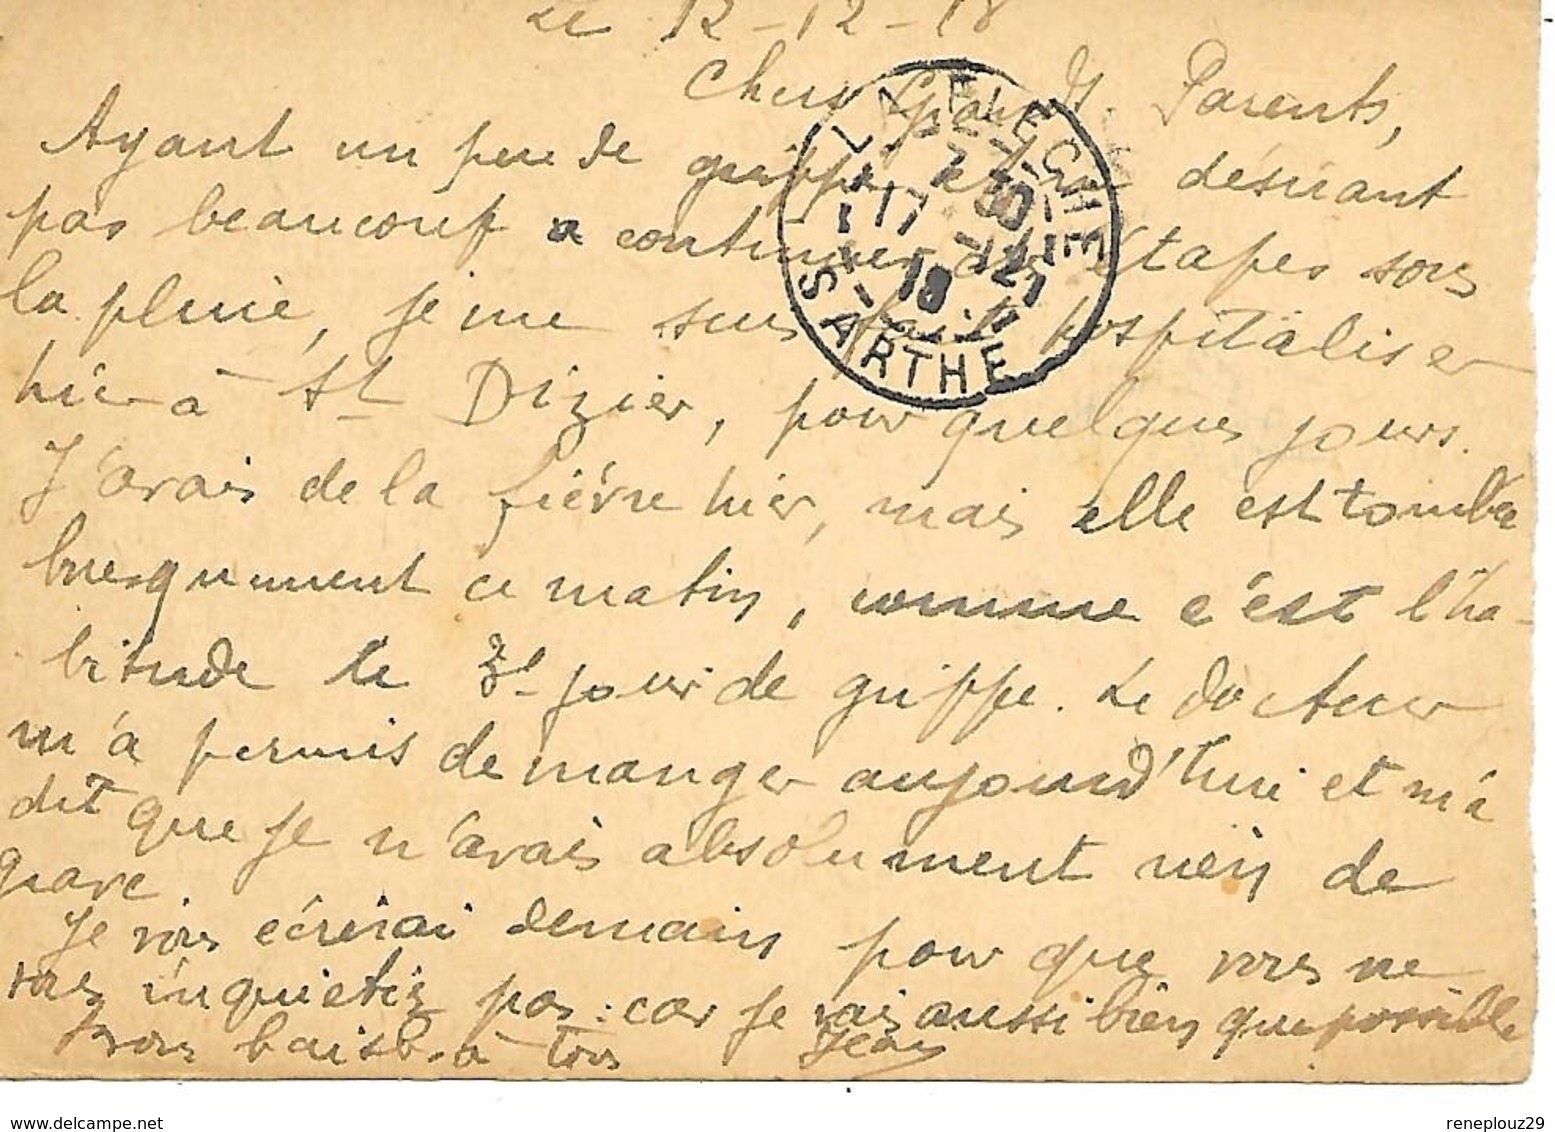 Le 12-12-18
Chers Grands Parents,
Ayant un peu de grippe et ne désirant
pas beaucoup a continuer les étapes sous
la pluie, je me suis fait hospitaliser
hier à St Dizier, pour quelques jours.
J'avais de la fièvre hier, mais elle est tombée
brusquement ce matin, comme c'est l'ha-
bitude le 3e jour de grippe. Le docteur
m'a permis de manger aujourd'hui et m'a
dit que je n'avais absolument rien de
grave.
Je vous écrirai demain pour que vous ne
vous inquiétiez pas : car je vais aussi bien que possible
Bons baisers à tous Jean
LA FLECHE
7 30
17 -12
18
SARTHE
reneplouz29